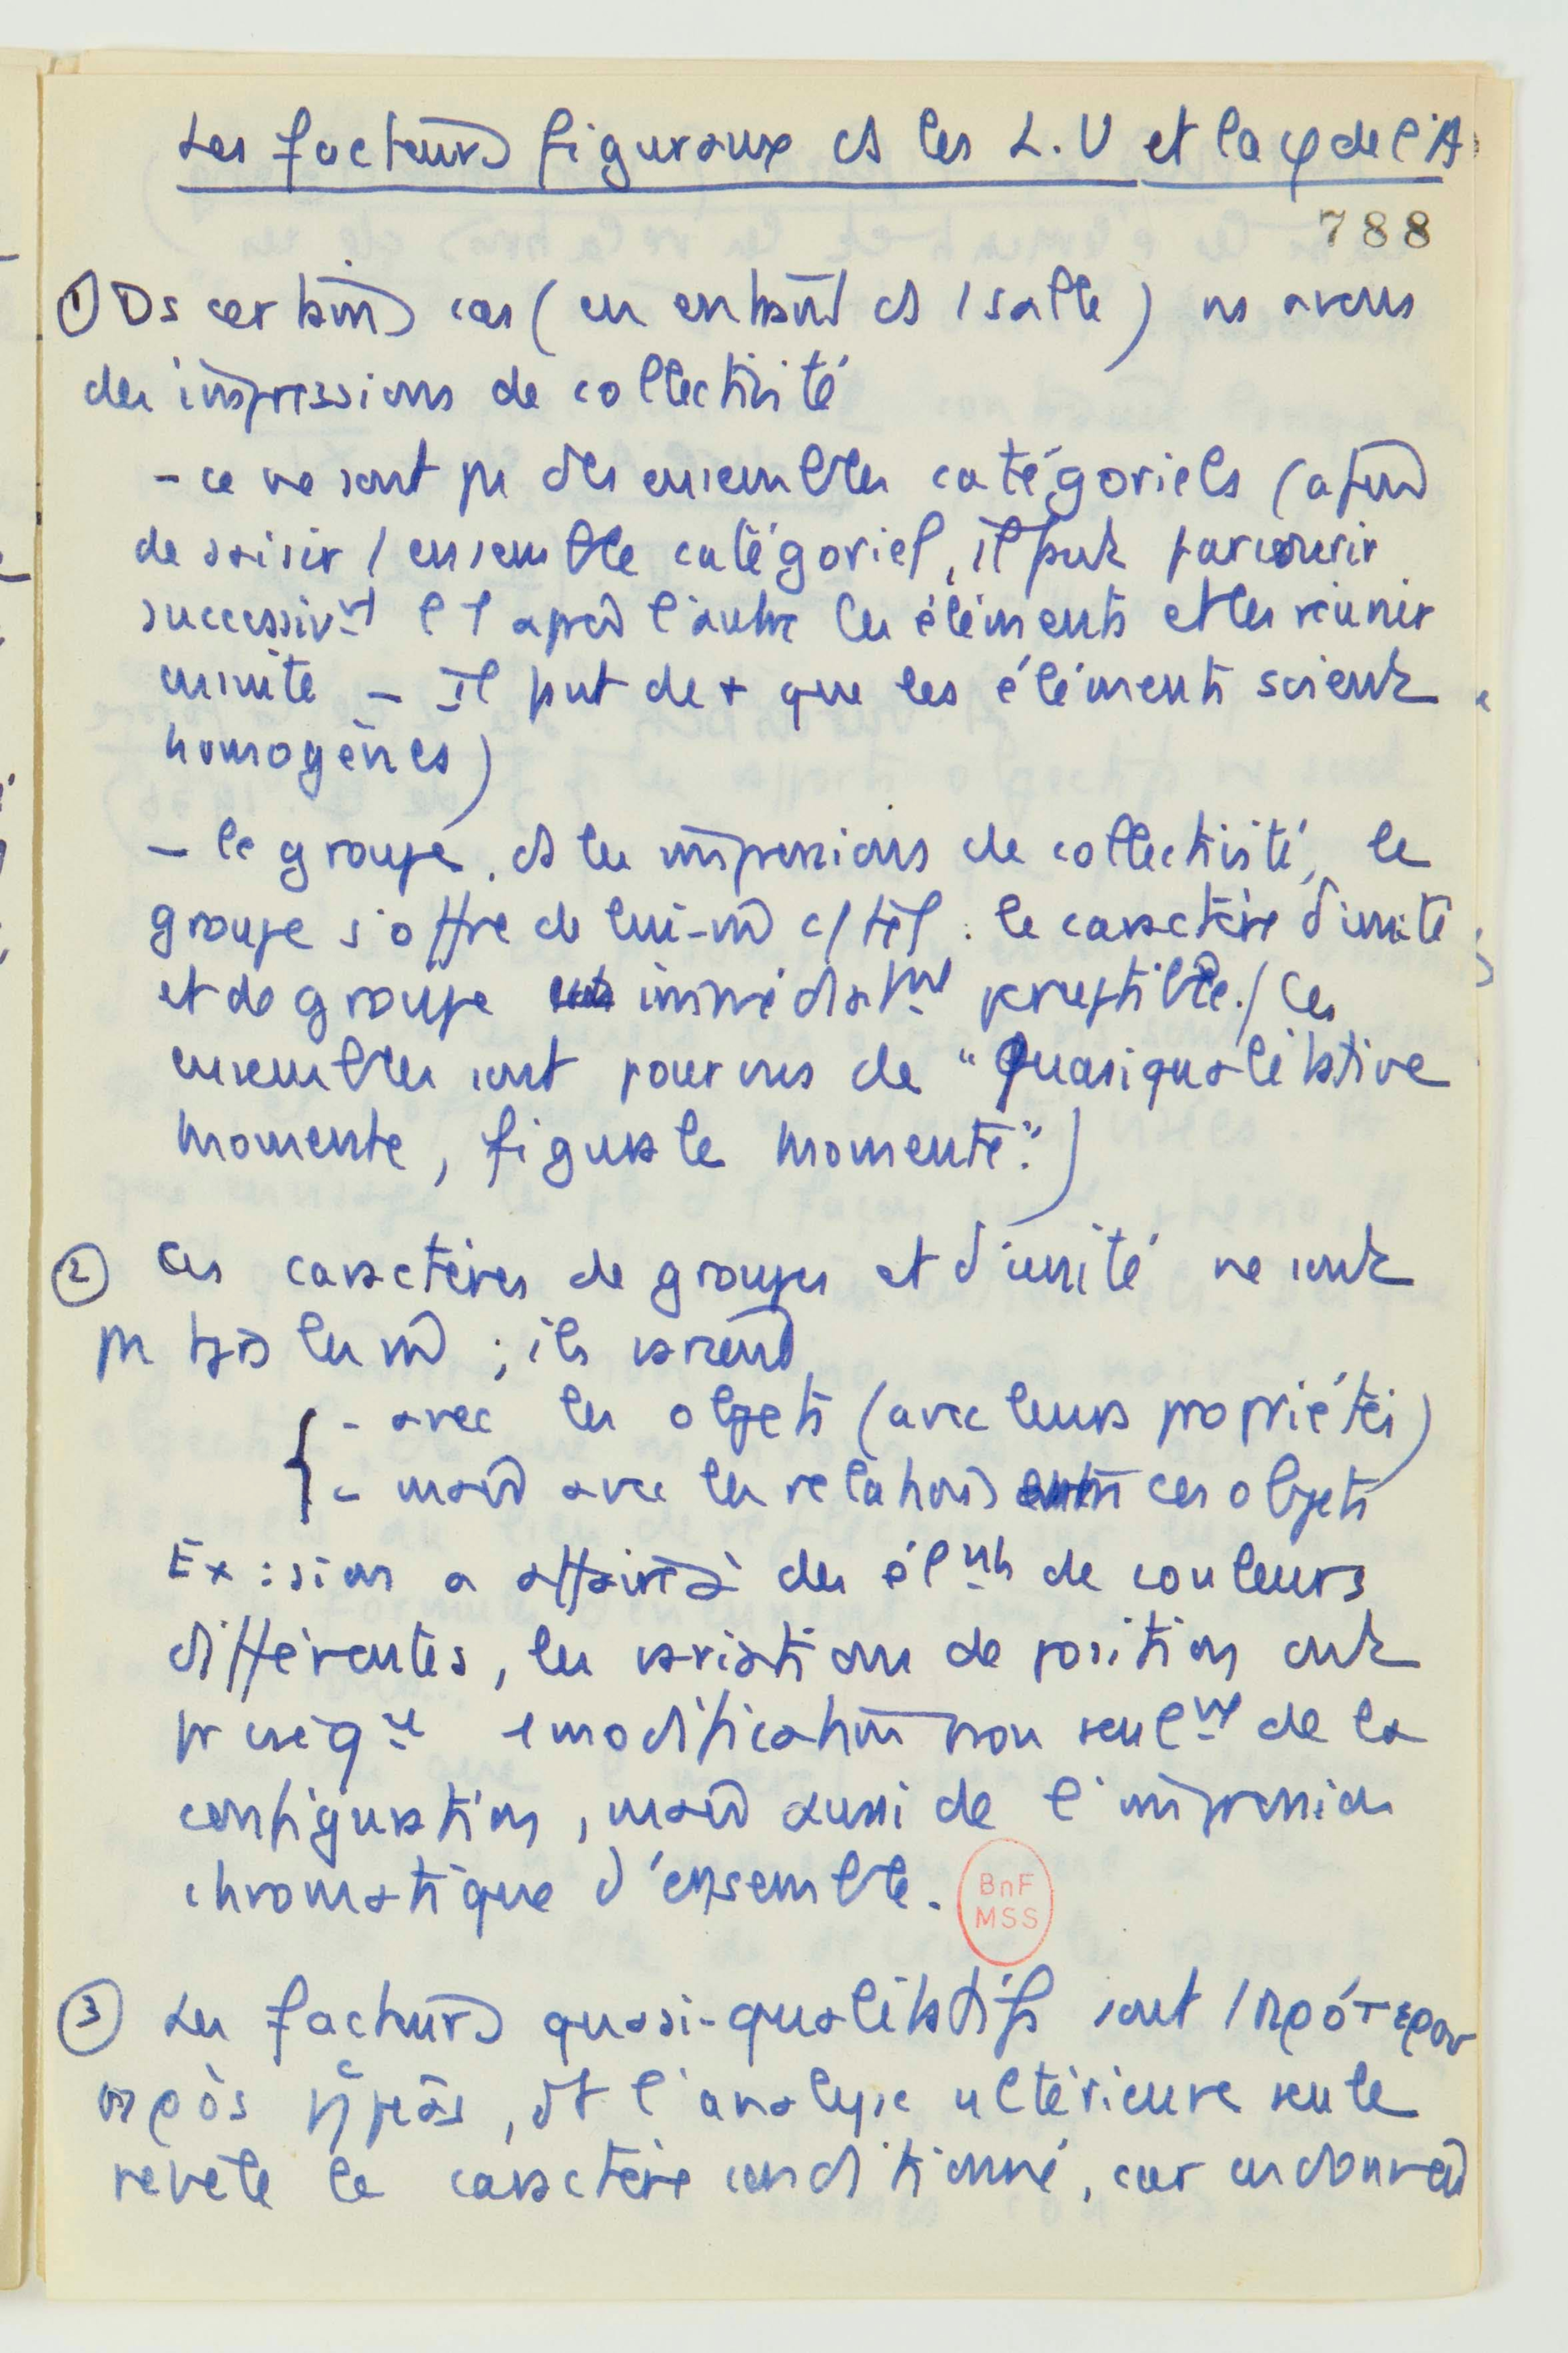 Les facteurs figuraux ds les L.U et la φ de l'A
788
① Ds certains cas (en entrant ds / salle) ns avons
des impressions de collectivité
- ce ne sont pas des ensembles catégoriels (afin
de saisir / ensemble catégoriel, il faut parcourir
successivt l'1 après l'autre les éléments et les réunir
en unité - Il faut de + que les éléments soient
homogènes)
- le groupe. ds les impressions de collectivité, le
groupe s'offre de lui-m c/ tel : le caractère d'unité
et de groupe est immédiatmt perceptible. / Ces
ensembles sont pourvus de "Quasiqualitative
Momente, figurale Momente".)
② Ces caractères de groupes et d'unité ne sont
pas tjs les m ; ils varient
{ - avec les objets (avec leurs propriétés)
- mais avec les relations entre ces objets
Ex : si on a affaire à des élmts de couleurs
différentes, les variations de position ont
pr conséq / modification non seulmt de la
configuration, mais aussi de l'impression
chromatique d'ensemble.
BnF
MSS
③ Les facteurs quasi-qualitatifs sont / πρότερον
πρὸς ἡμᾶς, dt l'analyse ultérieure seule
révèle le caractère conditionné, car